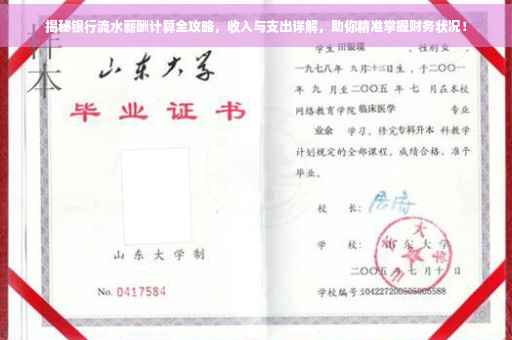 揭秘银行流水薪酬计算全攻略，收入与支出详解，助你精准掌握财务状况！
样本
山东大学
毕业证书
山东大学制
No. 0417584
学生 田银瑞 ，性别女，
一九七八年 九月十三日生，于二〇〇一
年 九 月至二〇〇五 年 七 月在本校
网络教育学院 临床医学 专业
业余 学习，修完专科升本科教学
计划规定的全部课程，成绩合格，准予
毕业。
校 长：
学 校： 山东大学
二〇〇五年七月十日
学校编号: